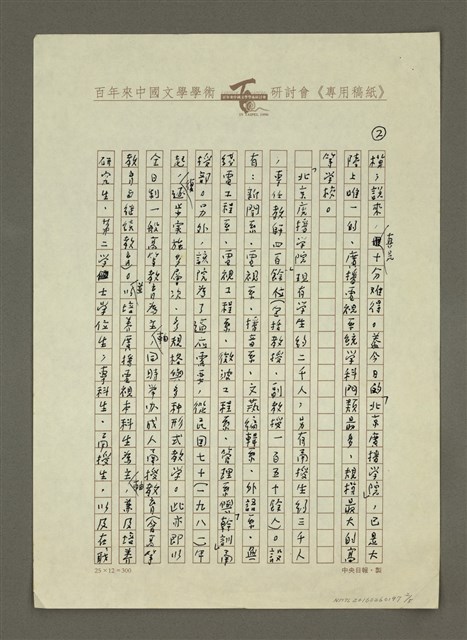 百年來中國文學學術研討會《專用稿紙》
②
模,說來,真是十分難得。蓋今日的「北京廣播學院」,已是大
陸上唯一的,廣播電視系統學科門類最多,規模最大的高
等學校。
「北京廣播學院」現有學生約二千人,另有函授生約三千人
,專任教師四百餘位(含教授、副教授一百五十餘人)。設
有:新聞系、電視系、播音系、文藝編輯系、外語系、無
綫電工程系、電視工程系、微波工程系、管理系與「幹訓」函
授部。另外,該院為了適應需要,從民國七十(一九八一)年
起,逐步實施多層次、多規格與多種形式教學。此亦即以
全日制一般高等教育為主,同時開辦成人函授教育(含高等
教育與繼續教育)。以培養廣播電視本科生為主,兼及培養
研究生、第二學士學位生,專科生、函授生,以及在職
25×12=300
中央日報・製